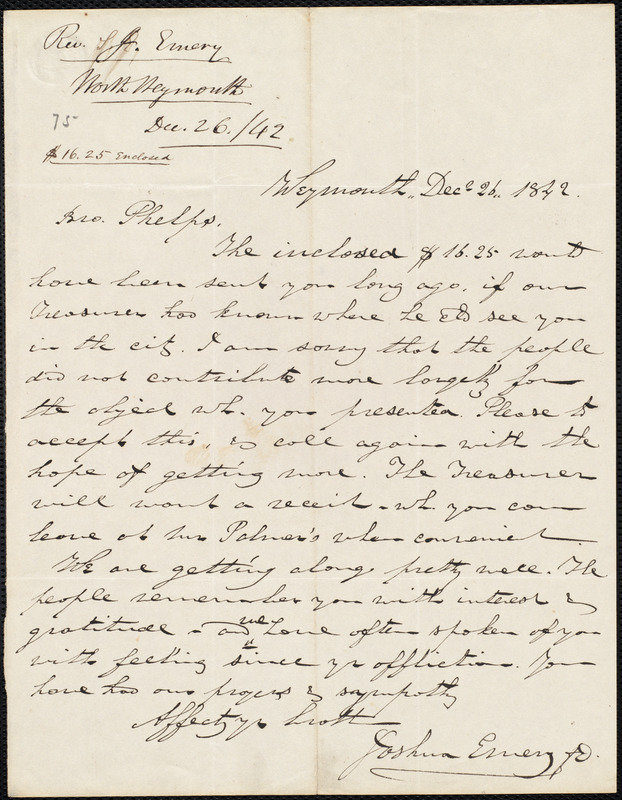 Rev. J. Emery
North Weymouth
75
Dec. 26./42
$16.25 Enclosed
Weymouth, Decr 26, 1842.
Bro. Phelps,
The inclosed $16.25 would
have been sent you long ago, if our
Treasurer had known where he cld see you
in the city. I am sorry that the people
did not contribute more largely for
the object wh. you presented. Please to
accept this, & call again with the
hope of getting more. The Treasurer
will want a receit - wh. you can
leave at Mr Palmer's when convenient.
We are getting along pretty well. The
people remember you with interest &
gratitude - and we have often spoken of you
with feeling since yr affliction. You
have had our prayers & sympathy
Affecty yr broth
Joshua Emery Jr.